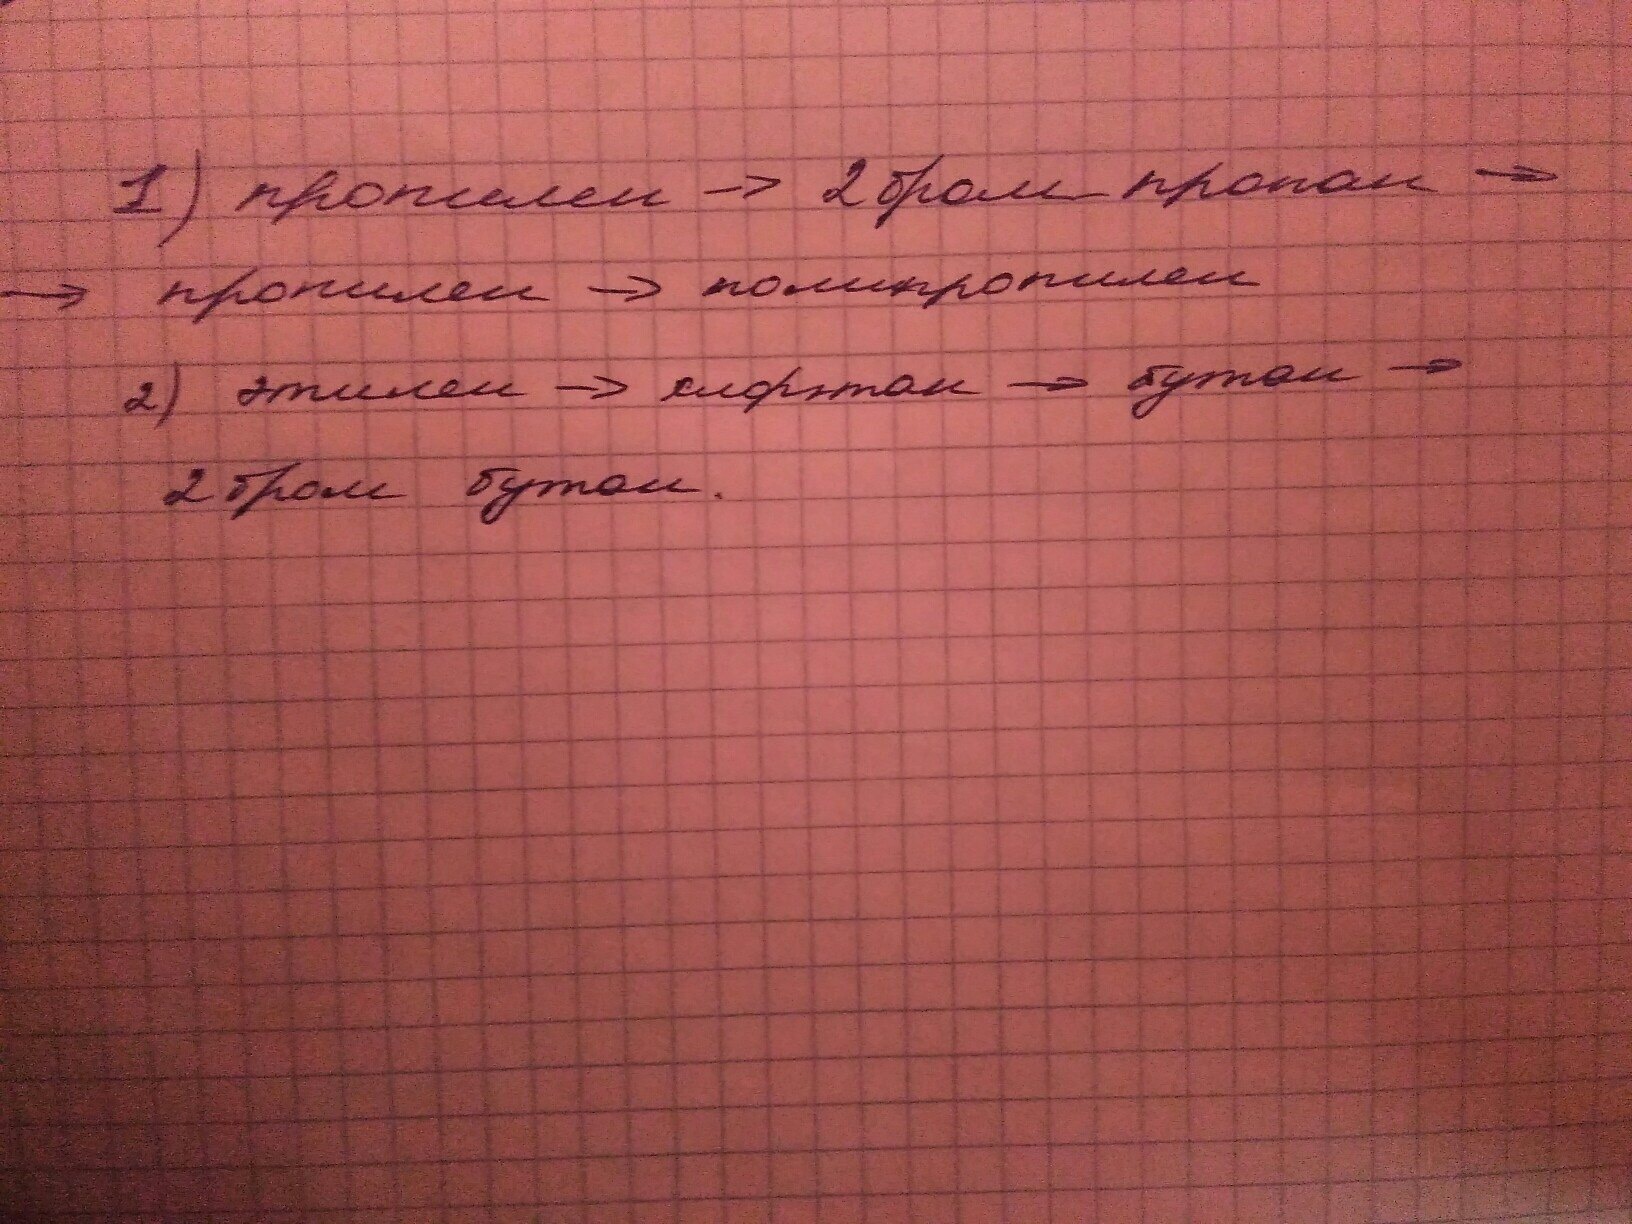 1) пропилен → 2 бром пропан →
→ пропилен → полипропилен
2) этилен → хлорэтан → бутан →
2 бром бутан.